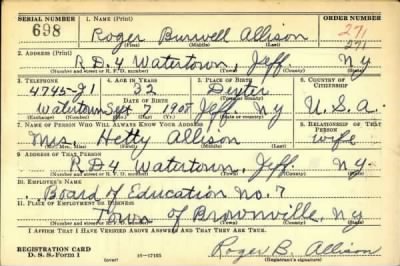 SERIAL NUMBER 1. NAME (Print) ORDER NUMBER
698 Roger Burwell Allison 271
(First) (Middle) (Last) 271
2. ADDRESS (Print)
R.D. 4 Watertown, Jeff. NY
(Number and street or R. F. D. number) (Town) (County) (State)
3. TELEPHONE 4. AGE IN YEARS 5. PLACE OF BIRTH 6. COUNTRY OF CITIZENSHIP
4745-J1 32 Dexter
DATE OF BIRTH (Town or county)
Watertown Sept. 7 1908 Jeff. NY U.S.A.
(Exchange) (Mo.) (Day) (Yr.) (State or country)
7. NAME OF PERSON WHO WILL ALWAYS KNOW YOUR ADDRESS 8. RELATIONSHIP OF THAT PERSON
Mrs. Hetty Allison wife
(Mr., Mrs., Miss) (First) (Middle) (Last)
9. ADDRESS OF THAT PERSON
R.D4 Watertown, Jeff. NY.
(Number and street or R. F. D. number) (Town) (County) (State)
10. EMPLOYER'S NAME
Board of Education No. 7
11. PLACE OF EMPLOYMENT OR BUSINESS
Town of Brownville, NY
(Number and street or R. F. D. number) (Town) (County) (State)
I AFFIRM THAT I HAVE VERIFIED ABOVE ANSWERS AND THAT THEY ARE TRUE.
REGISTRATION CARD Roger B. Allison
D. S. S. Form 1 (over) 16-17105 (Registrant's signature)